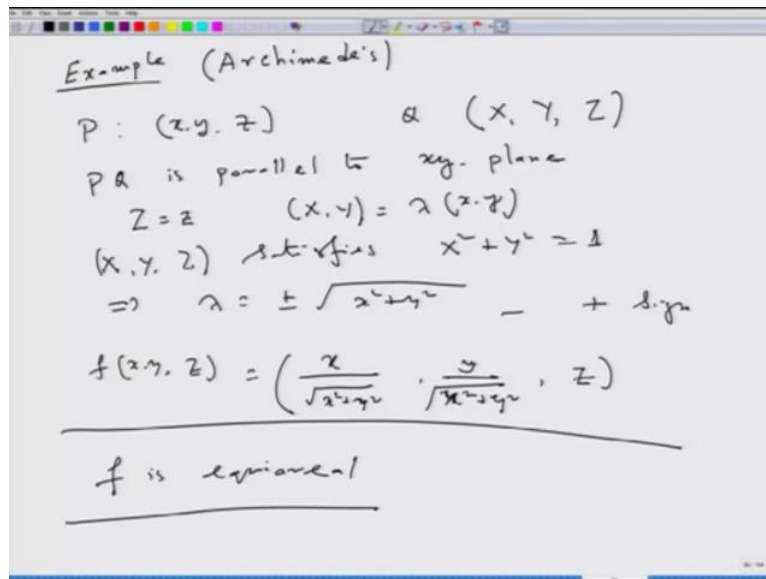 Example (Archimede's)
P : (x.y. z) Q (X, Y, Z)
PQ is parallel to xy- plane
Z = z (X, Y) = λ (x.y)
(X, Y, Z) satisfies x² + y² = 1
=> λ = ± √x²+y² — + sign
f (x.y, z) = (x/√x²+y² , y/√x²+y² , z)
f is equiareal